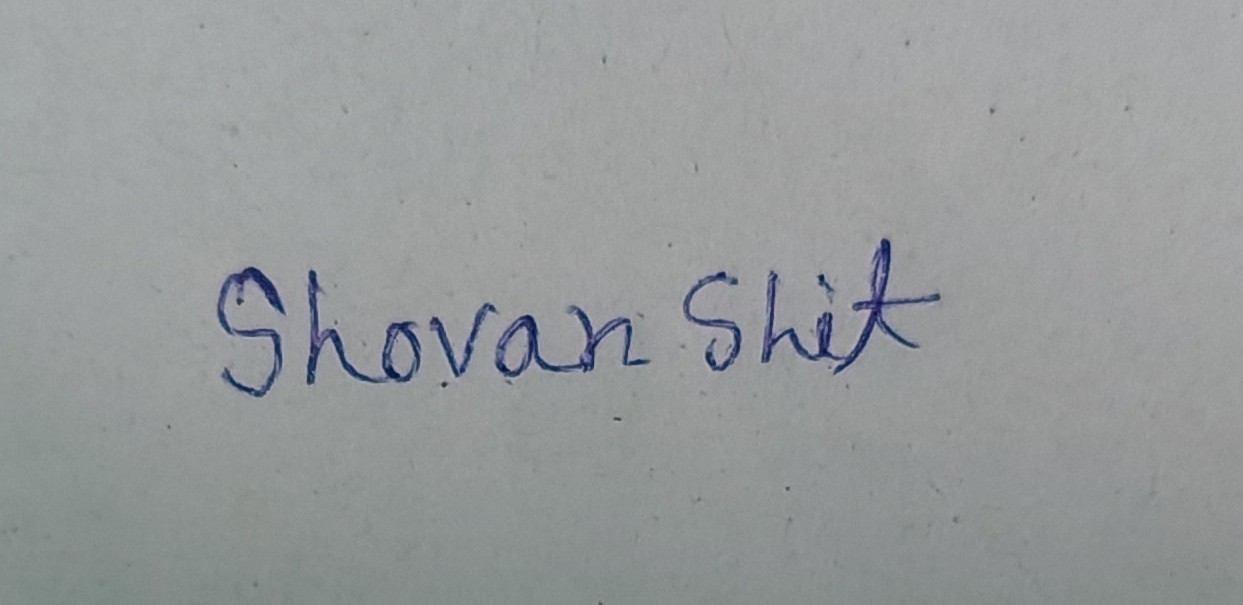 Shovan Shit